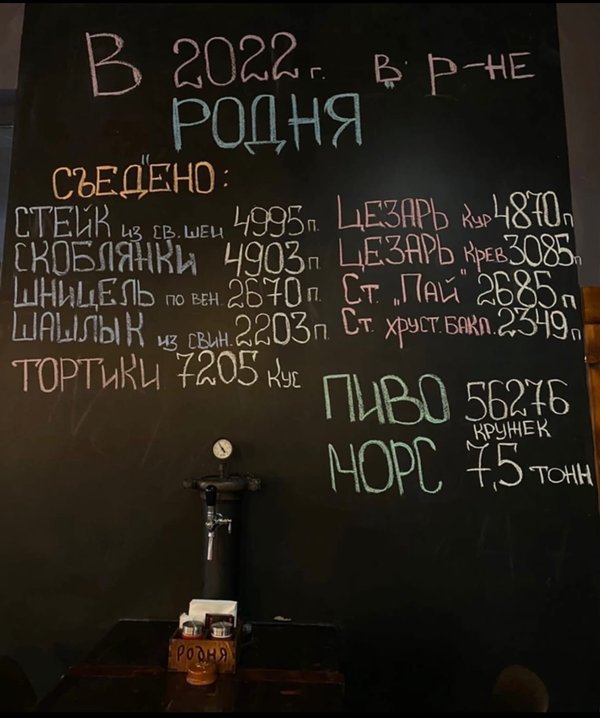 В 2022 г. в р-не
РОДНЯ
СЪЕДЕНО:
СТЕЙК из св. шеи 4995 п.
СКОБЛЯНКИ 4903 п.
ШНИЦЕЛЬ по вен. 2670 п.
ШАШЛЫК из свин. 2203 п.
ТОРТИКИ 7205 кус
ЦЕЗАРЬ кур 4870 п
ЦЕЗАРЬ крев 3085 п
Ст. „Пай" 2685 п
Ст. хруст. бакл. 2349 п.
ПИВО 56276
кружек
МОРС 7,5 тонн
РОДНЯ